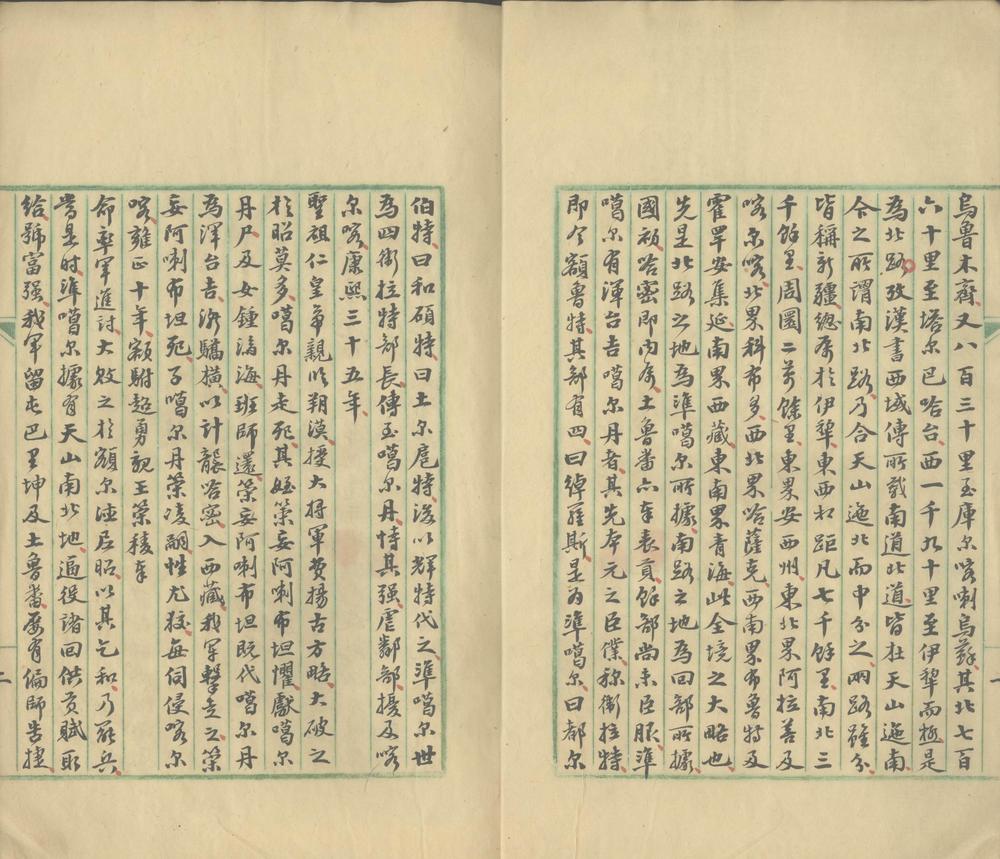 烏魯木齊又八百三十里至庫尔喀喇烏蘇其北七百
六十里至塔尔巴哈台西一千九十里至伊犂而極是
為北路攷漢書西域傳所載南道北道皆在天山迤南
今之所謂南北路乃合天山迤北而中分之兩路雖分
皆稱新疆總属於伊犂東西相距凡七千餘里南北三
千餘里周圍二万餘里東界安西州東北界阿拉善及
喀尔喀北界科布多西北界哈薩克西南界布魯特及
霍罕安集延南界西藏東南界青海此全境之大略也
先是北路之地為準噶尔所據南路之地為回部所據
國初哈密即内属土魯番亦奉表貢餘部尚未臣服準
噶尔有渾台吉噶尔丹者其先本元之臣僕称衛拉特
即今額魯特其部有四曰綽羅斯是為準噶尔曰都尔
伯特曰和碩特曰土尔扈特後以輝特代之準噶尔世
為四衛拉特部長傳至噶尔丹恃其强虐鄰部擾及喀
尔喀康熙三十五年
聖祖仁皇帝親臨朔漠授大将軍費揚古方略大破之
於昭莫多噶尔丹走死其姪策妄阿喇布坦懼獻噶尔
丹尸及女鍾濟海班師還策妄阿喇布坦既代噶尔丹
為渾台吉漸驕横以計襲哈密入西藏我軍擊走之策
妄阿喇布坦死子噶尔丹策凌嗣性尤狡每伺侵喀尔
喀雍正十年額駙超勇親王策稜奉
命率軍進討大敗之於額尔德尼昭以其乞和乃罷兵
當是时準噶尔據有天山南北地逼役諸回供貢賦取
給號富强我軍留屯巴里坤及土魯番屡有偏師告捷
一
二